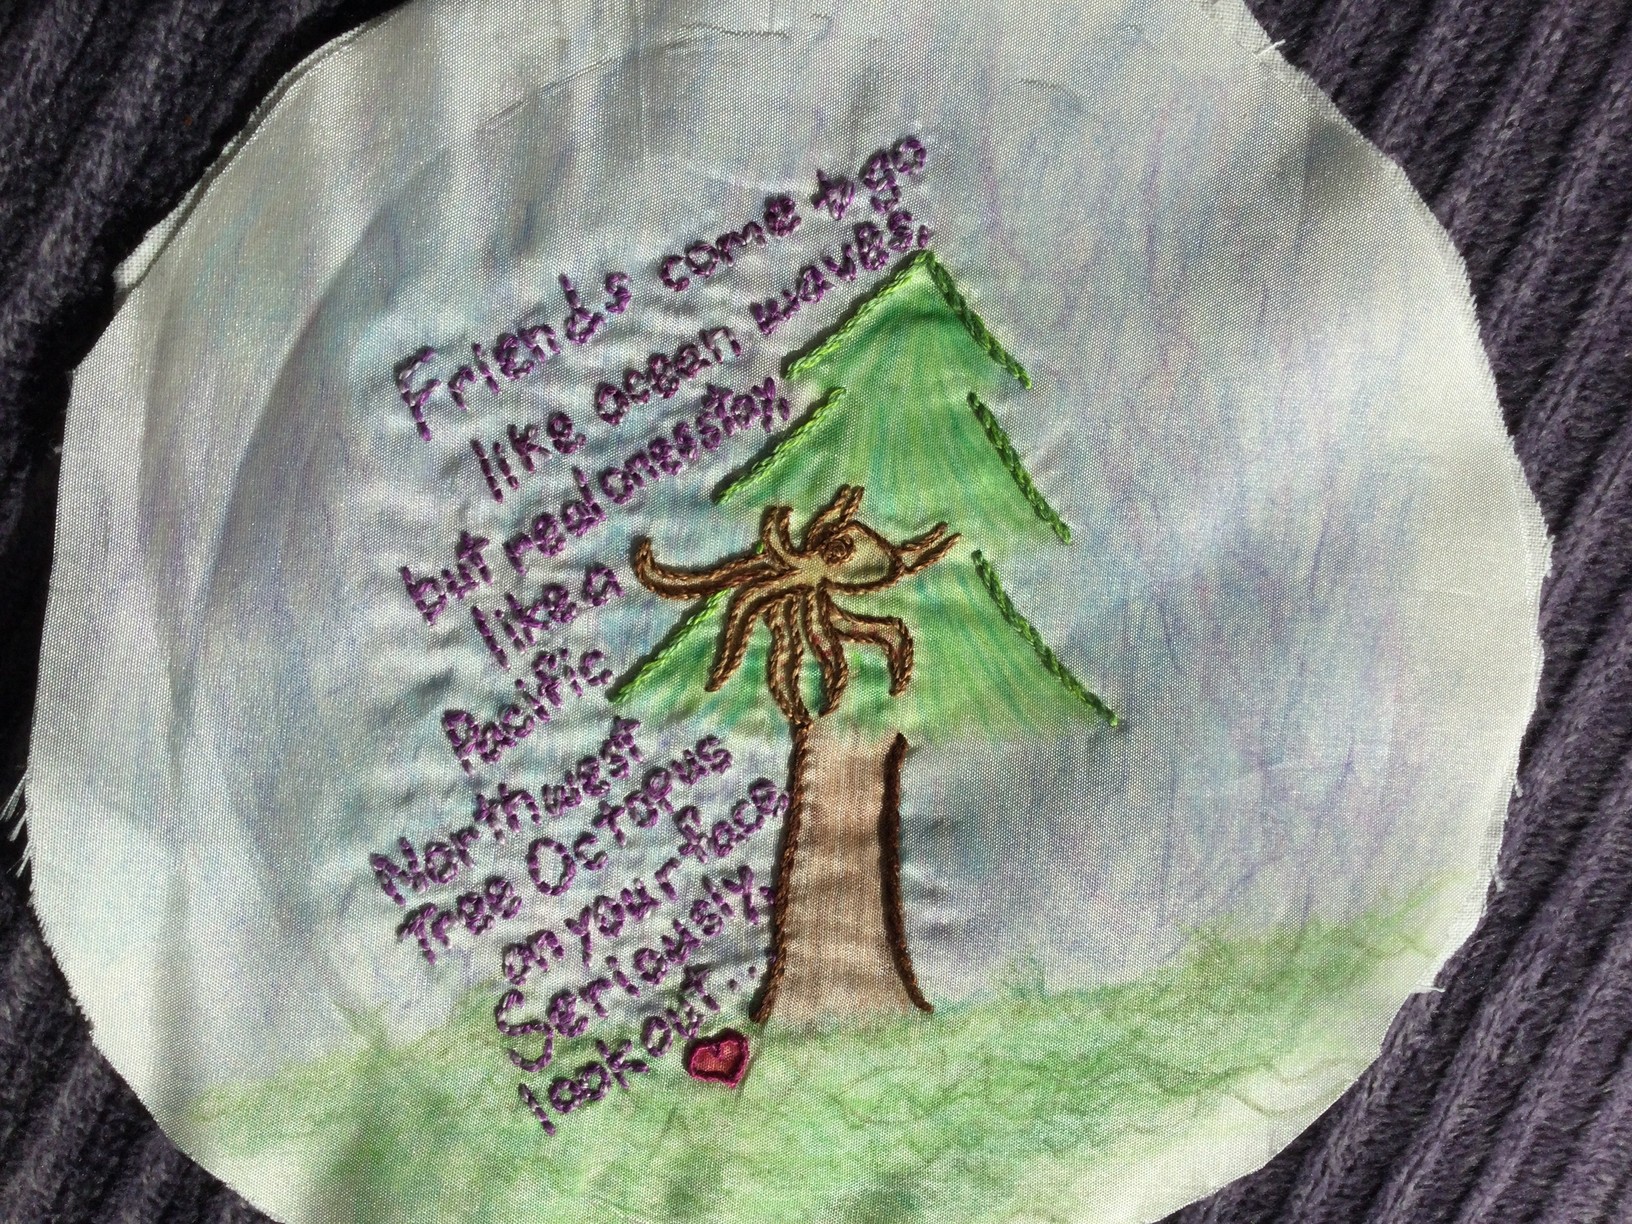 Friends come & go
like ocean waves,
but real ones stay,
like a
Pacific
Northwest
Tree Octopus
on your face.
Seriously,
look out...